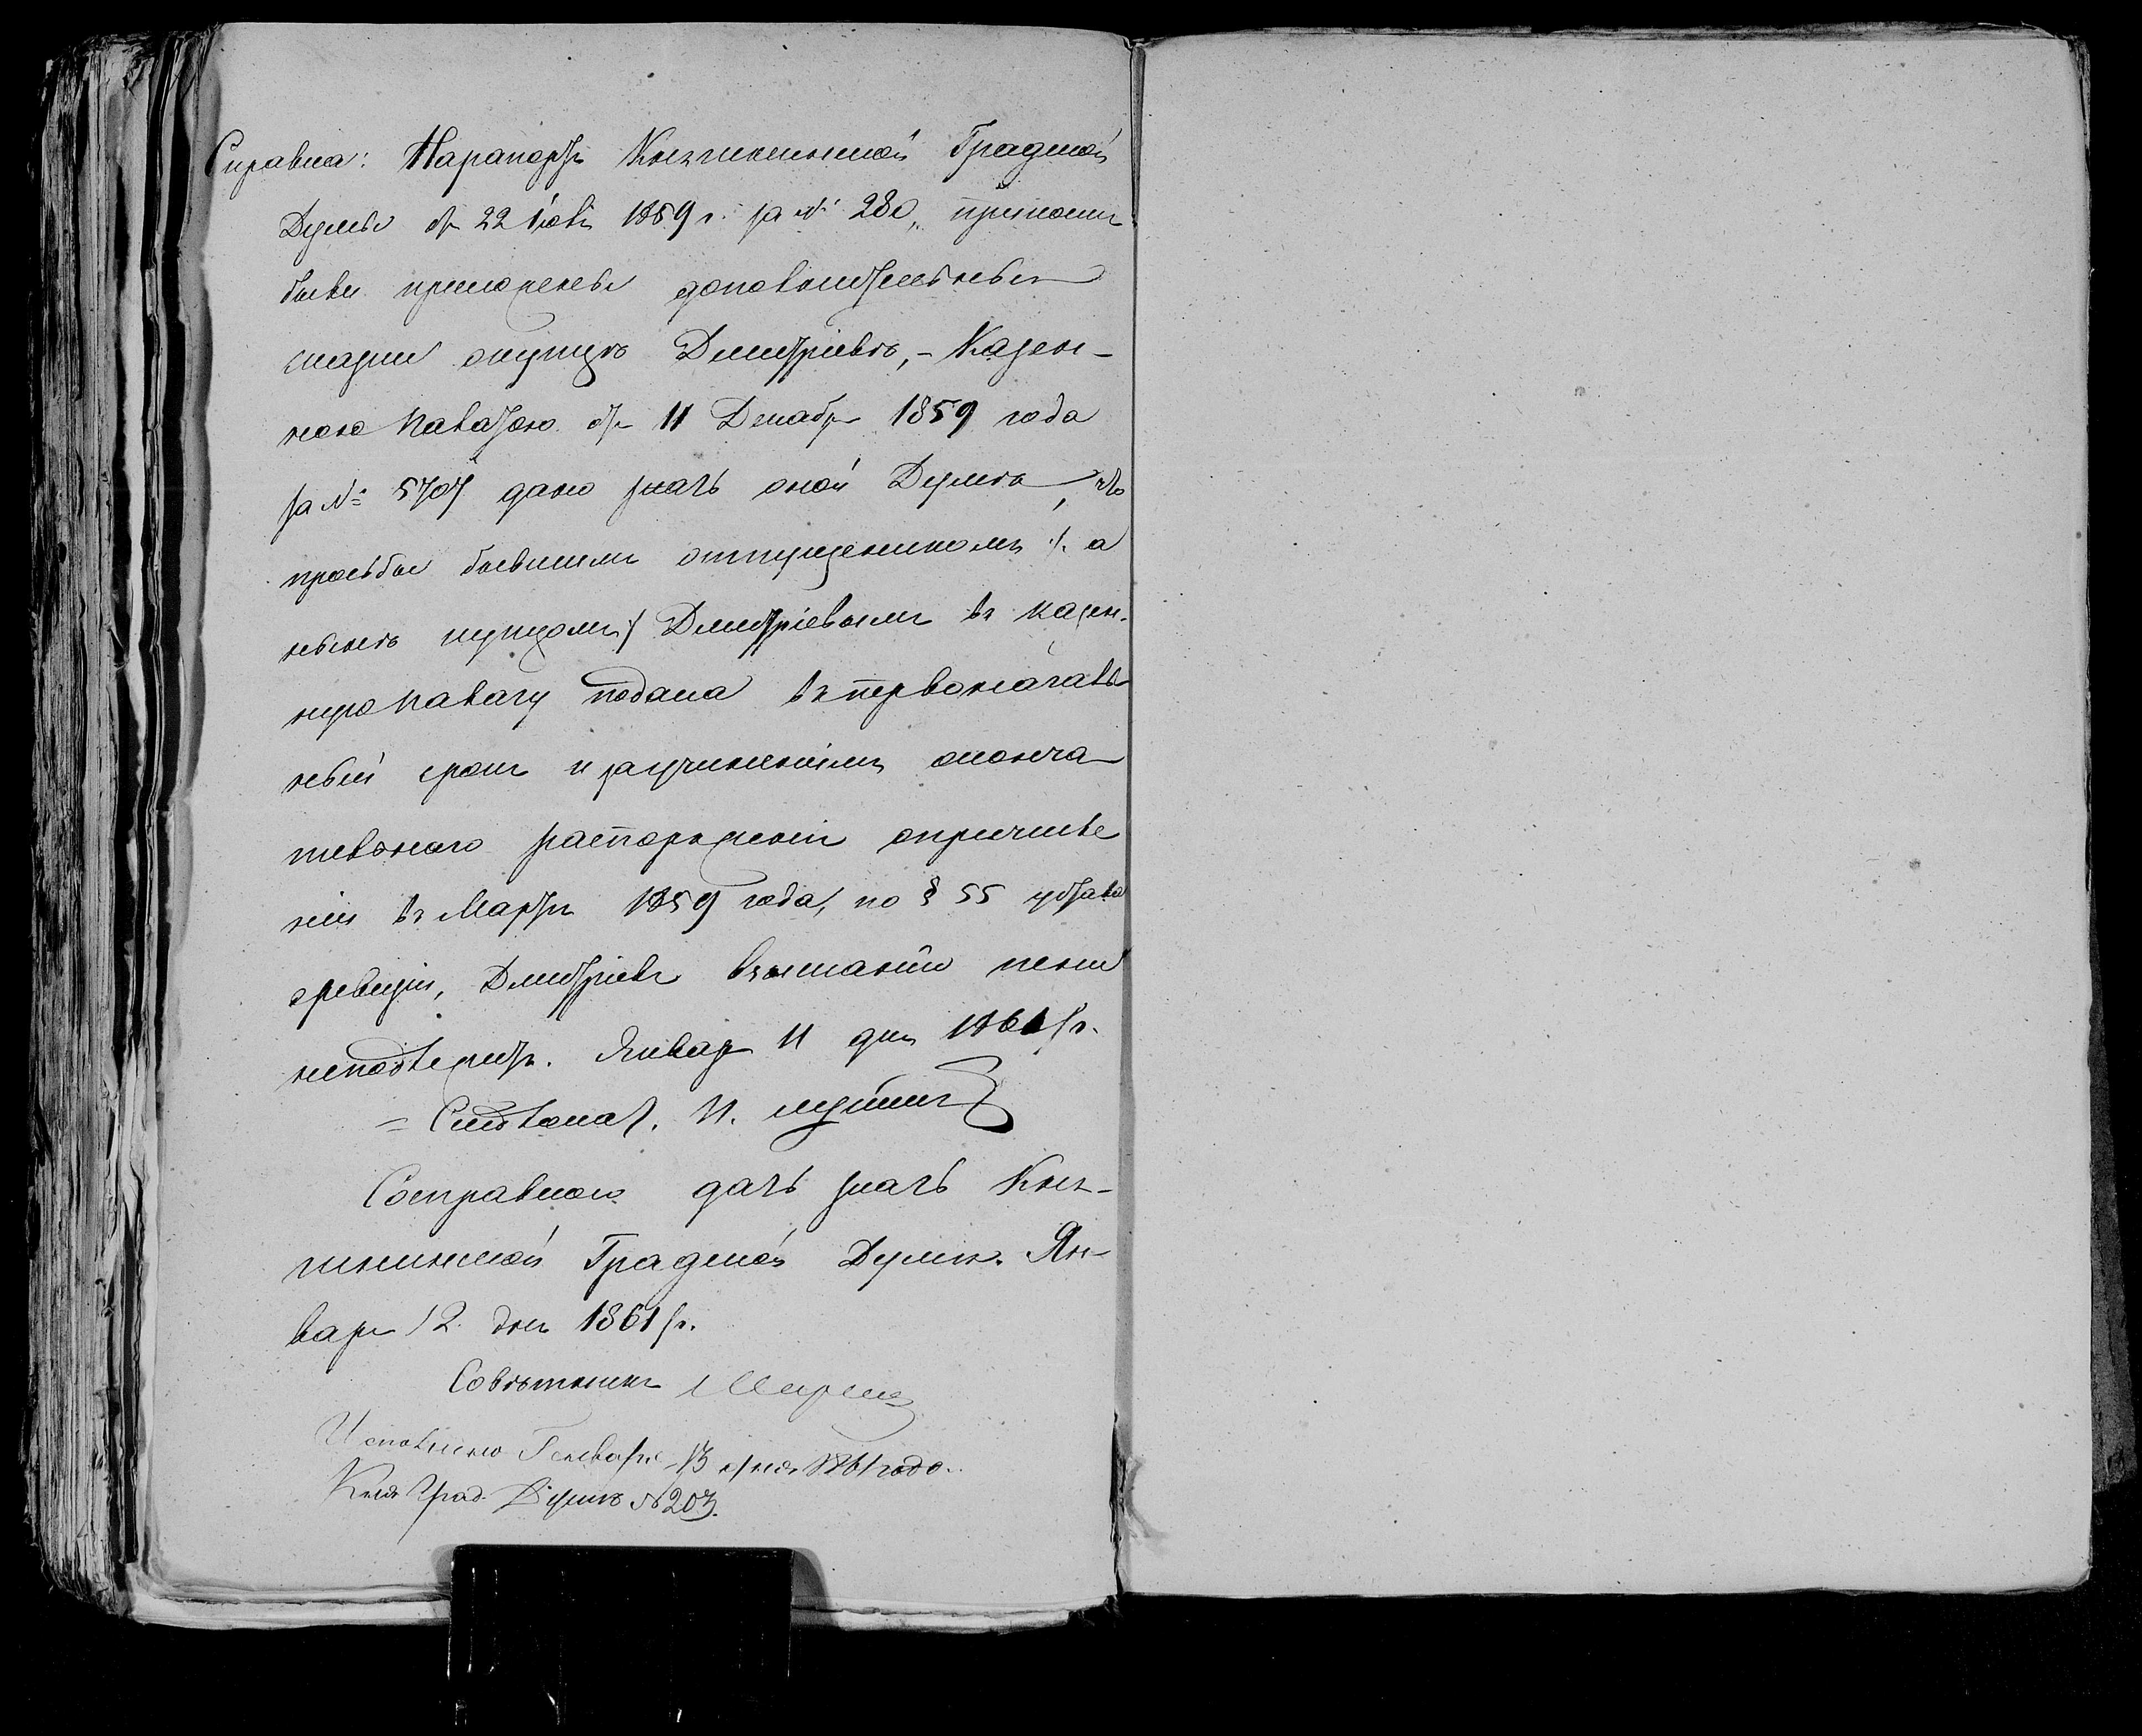 Справка: На рапортъ Княгининской Градской
Думы отъ 22 Іюля 1859 г. за № 280, при коемъ
были приложены дополнительныя
сказки о купцѣ Дмитріевѣ, – Казен-
ною Палатою отъ 11 Декабря 1859 года
за № 5707 дано знать оной Думѣ, что
просьба бывшимъ отпущенникомъ /: а
нынѣ купцомъ :/ Дмитріевымъ въ казен-
ную палату подана въ первоначаль
ный срокъ и за учиненіемъ оконча
тельнаго распоряженія о причисле
ніи въ Мартѣ 1859 года, по § 55 устава
о ревизіи, Дмитріевъ взысканію пени
неподлежитъ. Января 11 дня 1861 г.
Столонач. И.
Со справкою дать знать Кня-
гининской Градской Думѣ. Ян-
варя 12 дня 1861 г.
Совѣтникъ
Исполнено Генваря 13 дня 1861 года.
Княг. Град. Думѣ № 203.